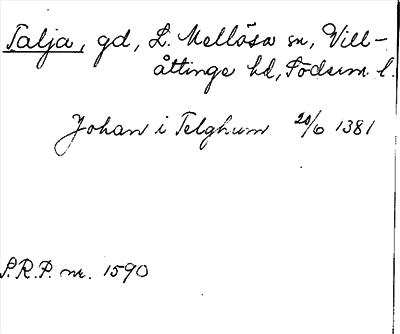 Talja, gd, L. Mellösa sn, Vill-
åttinge hd, Söderm l.
Johan i Telghum 20/6 1381
S.R.P. nr. 1590